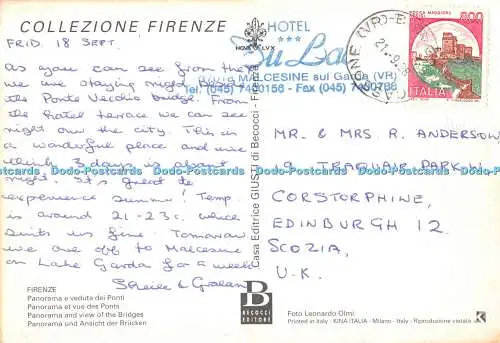 COLLEZIONE FIRENZE
FRID. 18 SEPT.
As you can see from the
we are staying right near
the Ponte Vecchio bridge. From
the hotel terrace we can see
right over the city. This is
a wonderful place and we
think 3 days is about
right. It's great to
experience summer! Temp.
is around 21-23c. which
suits us fine. Tomorrow
we are off to Malcesine
on Lake Garda for a week
Sheila & Graham
FIRENZE
Panorama e veduta dei Ponti
Panorama et vue des Ponts
Panorama and view of the Bridges
Panorama und Ansicht der Brücken
NOVA LVX
Casa Editrice GIUSTI di Becocci - Firenze
HOTEL
***
MALCESINE sul Garda (VR)
Tel. (045) 7400156 - Fax (045) 7400786
ROCCA MAGGIORE
800
ITALIA
MR. & MRS R. ANDERSON,
9 TRAQUAIR PARK
CORSTORPHINE,
EDINBURGH 12.
SCOZIA,
U.K.
B
BECOCCI
EDITORE
Foto Leonardo Olmi
Printed in Italy - KINA ITALIA - Milano - Italy - Riproduzione vietata
K
Dodo-Postcards